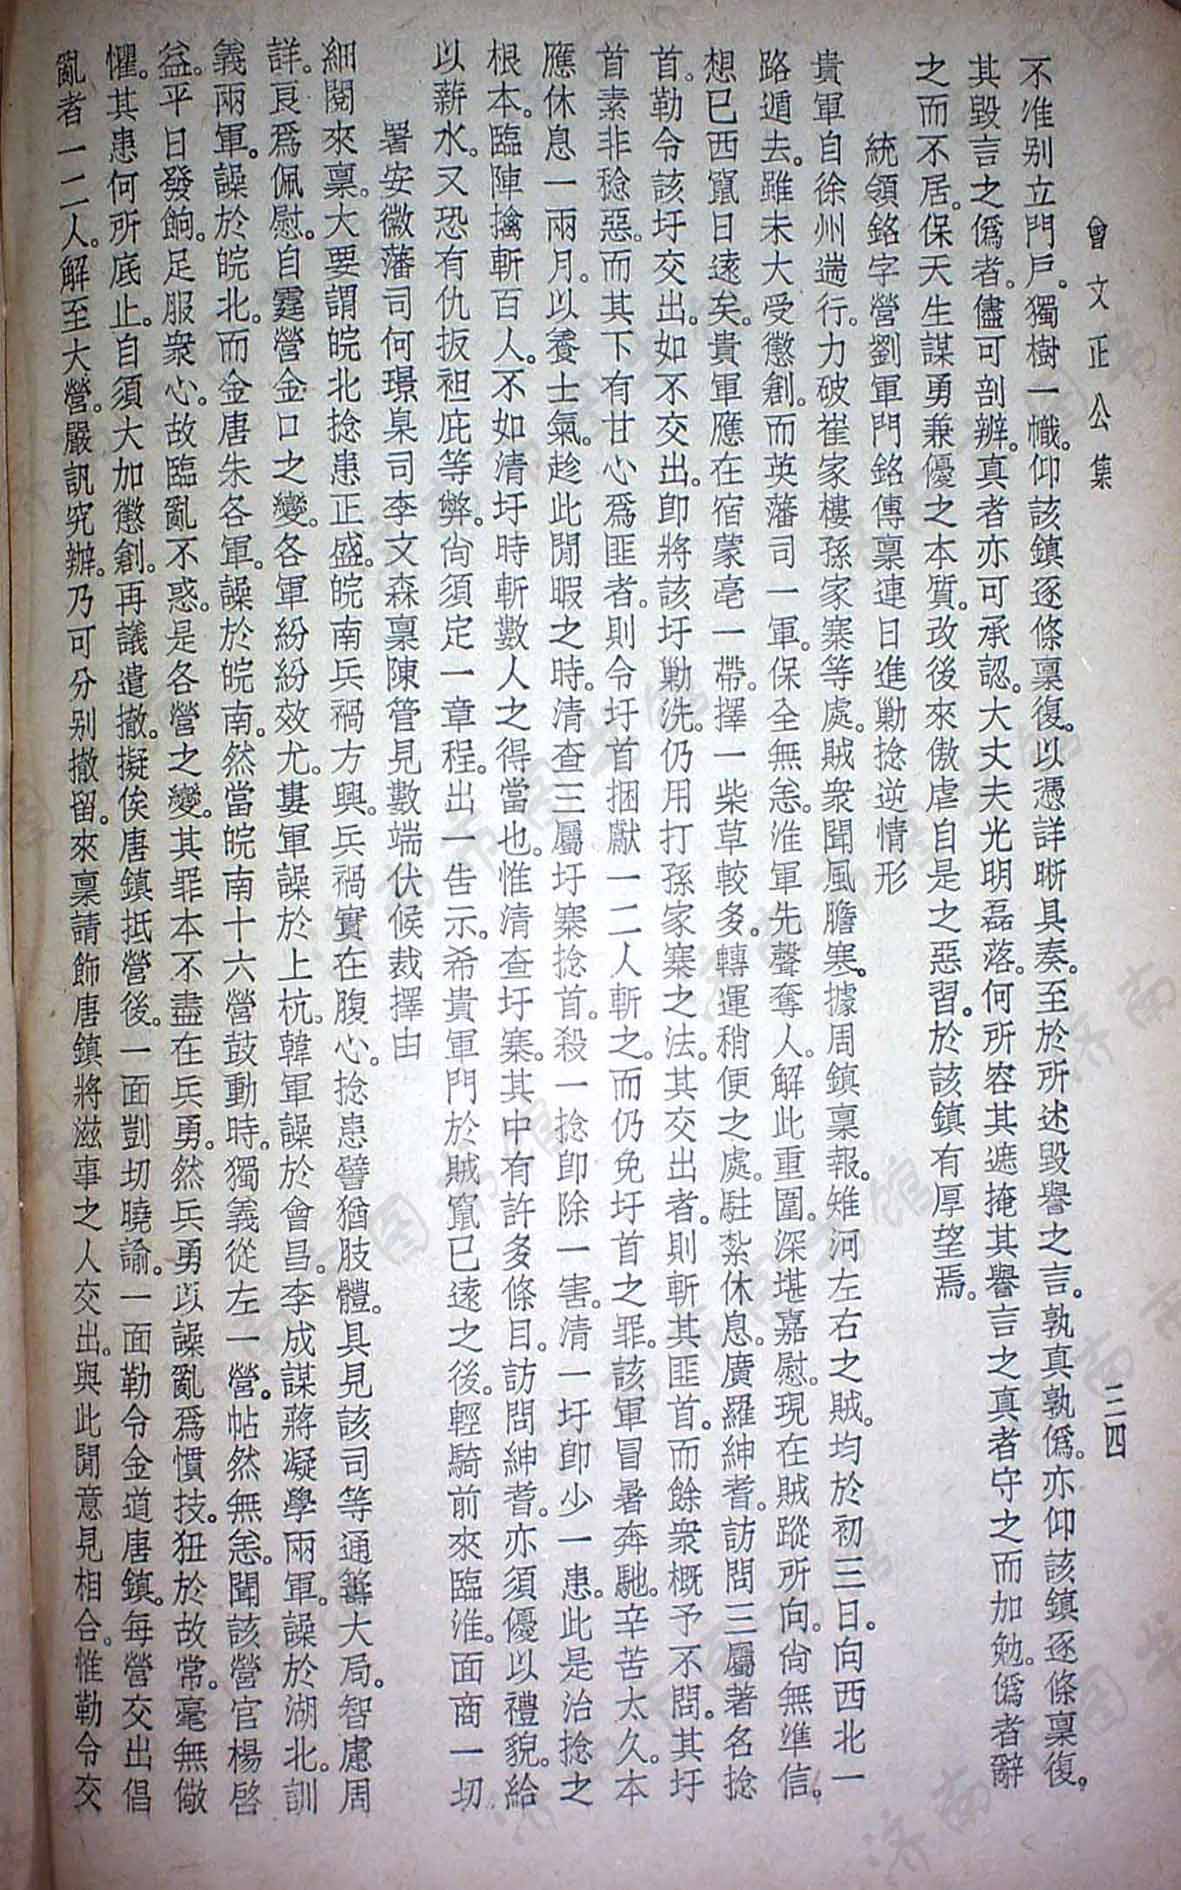 曾文正公集
三四
不准别立門戶。獨樹一幟。仰該鎮逐條稟復。以憑詳晰具奏。至於所述毀譽之言。孰真孰僞。亦仰該鎮逐條稟復。
其毀言之僞者。儘可剖辨。真者亦可承認。大丈夫光明磊落。何所容其遮掩其譽言之真者守之而加勉。僞者辭
之而不居。保天生謀勇兼優之本質。改後來傲虐自是之惡習。於該鎮有厚望焉。
統領銘字營劉軍門銘傳稟連日進勦捻逆情形
貴軍自徐州遄行。力破崔家樓孫家寨等處。賊衆聞風膽寒。據周鎮稟報。雉河左右之賊。均於初三日。向西北一
路遁去。雖未大受懲創。而英藩司一軍。保全無恙。淮軍先聲奪人。解此重圍。深堪嘉慰。現在賊蹤所向。尙無準信。
想已西竄日遠矣。貴軍應在宿蒙亳一帶。擇一柴草較多。轉運稍便之處。駐紮休息。廣羅紳耆。訪問三屬著名捻
首。勒令該圩交出。如不交出。卽將該圩勦洗。仍用打孫家寨之法。其交出者。則斬其匪首。而餘衆概予不問。其圩
首素非稔惡。而其下有甘心爲匪者。則令圩首捆獻一二人斬之。而仍免圩首之罪。該軍冒暑奔馳。辛苦太久。本
應休息一兩月。以養士氣。趁此閒暇之時。清查三屬圩寨捻首。殺一捻卽除一害。清一圩卽少一患。此是治捻之
根本。臨陣擒斬百人。不如清圩時斬數人之得當也。惟清查圩寨。其中有許多條目。訪問紳耆。亦須優以禮貌。給
以薪水。又恐有仇扳袒庇等弊。尙須定一章程。出一告示。希貴軍門於賊竄已遠之後。輕騎前來臨淮。面商一切
署安徽藩司何璟臬司李文森稟陳管見數端伏候裁擇由
細閱來稟。大要謂皖北捻患正盛。皖南兵禍方興。兵禍實在腹心。捻患譬猶肢體。具見該司等通籌大局。智慮周
詳。良爲佩慰。自霆營金口之變。各軍紛紛效尤。婁軍譟於上杭。韓軍譟於會昌。李成謀蔣凝學兩軍。譟於湖北。訓
義兩軍。譟於皖北。而金唐朱各軍。譟於皖南。然當皖南十六營鼓動時。獨義從左一營。帖然無恙。聞該營官楊啓
益。平日發餉。足服衆心。故臨亂不惑。是各營之變。其罪本不盡在兵勇。然兵勇以譟亂爲慣技。狃於故常。毫無儆
懼。其患何所底止。自須大加懲創。再議遣撤。擬俟唐鎮抵營後。一面剴切曉諭。一面勒令金道唐鎮。每營交出倡
亂者一二人。解至大營。嚴訊究辦。乃可分別撤留。來稟請飾唐鎮將滋事之人交出。與此閒意見相合。惟勒令交